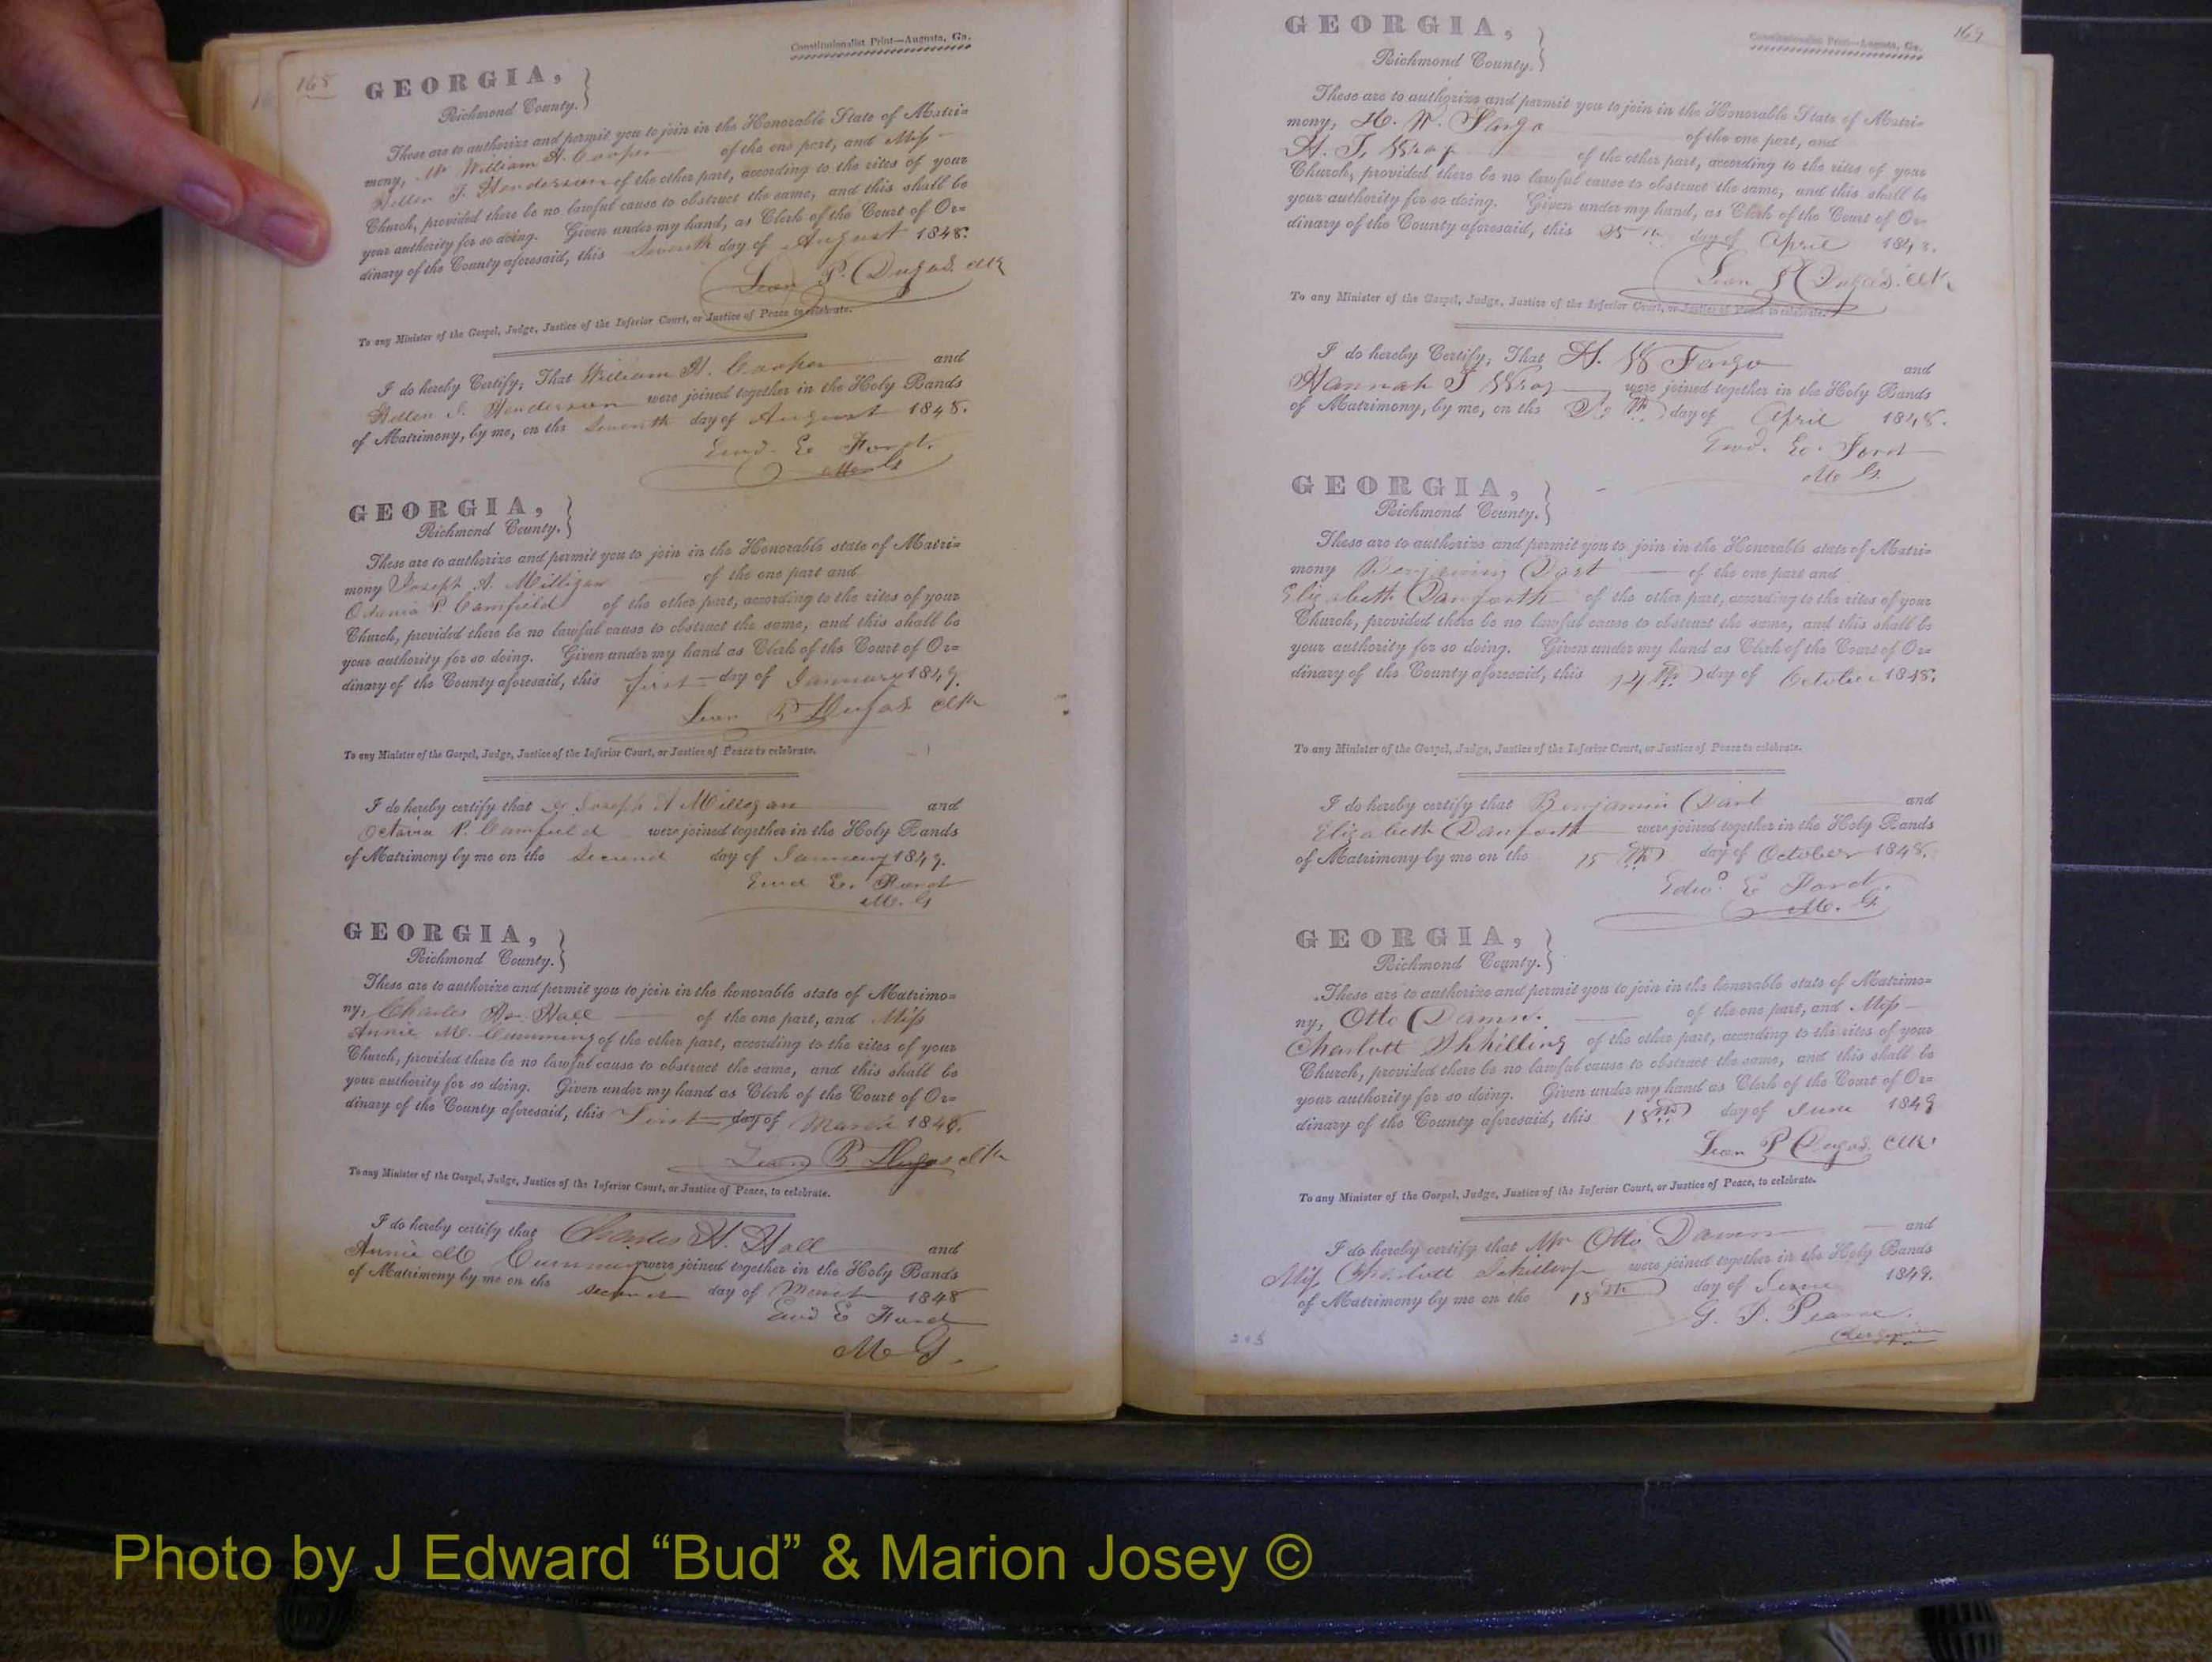 168
Constitutionalist Print—Augusta, Ga.
GEORGIA,
Richmond County.
These are to authorize and permit you to join in the Honorable State of Matri-
mony, Mr William H. Cooper of the one part, and Miss
Hellen J. Henderson of the other part, according to the rites of your
Church, provided there be no lawful cause to obstruct the same, and this shall be
your authority for so doing. Given under my hand, as Clerk of the Court of Or-
dinary of the County aforesaid, this Seventh day of August 1848.
Leon P. Dugas. Clk
To any Minister of the Gospel, Judge, Justice of the Inferior Court, or Justice of Peace to celebrate.
I do hereby Certify, That William H. Cooper and
Hellen J. Henderson were joined together in the Holy Bands
of Matrimony, by me, on the Seventh day of August 1848.
Edwd. E Ford.
M G
GEORGIA,
Richmond County.
These are to authorize and permit you to join in the Honorable state of Matri-
mony Joseph A. Milligan of the one part and
Octavia P. Camfield of the other part, according to the rites of your
Church, provided there be no lawful cause to obstruct the same, and this shall be
your authority for so doing. Given under my hand as Clerk of the Court of Or-
dinary of the County aforesaid, this first day of January 1849.
Leon P Dugas Clk
To any Minister of the Gospel, Judge, Justice of the Inferior Court, or Justice of Peace to celebrate.
I do hereby certify that Joseph A Milligan and
Octavia P. Camfield were joined together in the Holy Bands
of Matrimony by me on the Second day of January 1849.
Edwd E. Ford
M. G
GEORGIA,
Richmond County.
These are to authorize and permit you to join in the honorable state of Matrimo-
ny, Charles H. Hall of the one part, and Miss
Annie M. Cumming of the other part, according to the rites of your
Church, provided there be no lawful cause to obstruct the same, and this shall be
your authority for so doing. Given under my hand as Clerk of the Court of Or-
dinary of the County aforesaid, this First day of March 1848.
Leon P Dugas Clk
To any Minister of the Gospel, Judge, Justice of the Inferior Court, or Justice of Peace, to celebrate.
I do hereby certify that Charles H. Hall and
Annie M Cumming were joined together in the Holy Bands
of Matrimony by me on the second day of March 1848
Edwd E Ford
M G.
169
Constitutionalist Print—Augusta, Ga.
GEORGIA,
Richmond County.
These are to authorize and permit you to join in the Honorable State of Matri-
mony, H. W. Fargo of the one part, and
H. T. Wray of the other part, according to the rites of your
Church, provided there be no lawful cause to obstruct the same, and this shall be
your authority for so doing. Given under my hand, as Clerk of the Court of Or-
dinary of the County aforesaid, this 25th day of April 1848.
Leon P Dugas. Clk
To any Minister of the Gospel, Judge, Justice of the Inferior Court, or Justice of Peace to celebrate.
I do hereby Certify, That H. W Fargo and
Hannah T Wray were joined together in the Holy Bands
of Matrimony, by me, on the day of April 1848.
Edwd. E. Ford
M G.
GEORGIA,
Richmond County.
These are to authorize and permit you to join in the Honorable state of Matri-
mony Benjamin Dart of the one part and
Elizabeth Danforth of the other part, according to the rites of your
Church, provided there be no lawful cause to obstruct the same, and this shall be
your authority for so doing. Given under my hand as Clerk of the Court of Or-
dinary of the County aforesaid, this 14th day of October 1848.
To any Minister of the Gospel, Judge, Justice of the Inferior Court, or Justice of Peace to celebrate.
I do hereby certify that Benjamin Dart and
Elizabeth Danforth were joined together in the Holy Bands
of Matrimony by me on the 15th day of October 1848.
Edwd E Ford.
M. G.
GEORGIA,
Richmond County.
These are to authorize and permit you to join in the honorable state of Matrimo-
ny, Otto Damm. of the one part, and Miss
Charlott Shhilling of the other part, according to the rites of your
Church, provided there be no lawful cause to obstruct the same, and this shall be
your authority for so doing. Given under my hand as Clerk of the Court of Or-
dinary of the County aforesaid, this 18th day of June 1849
Leon P Dugas. Clk
To any Minister of the Gospel, Judge, Justice of the Inferior Court, or Justice of Peace, to celebrate.
I do hereby certify that Mr Otto Damm and
Miss Charlott Schilling were joined together in the Holy Bands
of Matrimony by me on the 18th day of June 1849.
G. F. Pearce.
Clergyman
205
Photo by J Edward “Bud” & Marion Josey ©